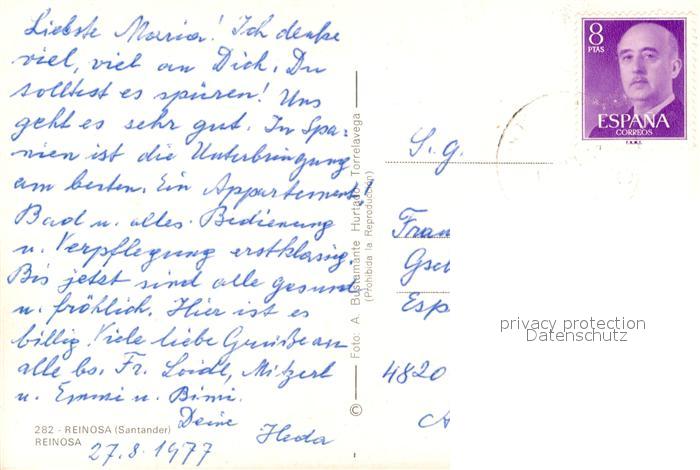 Liebste Maria! Ich denke
viel, viel an Dich. Du
solltest es spüren! Uns
geht es sehr gut. In Spa-
nien ist die Unterbringung
am besten. Ein Appartement,
Bad u. alles. Bedienung
u. Verpflegung erstklassig.
Bis jetzt sind alle gesund
u. fröhlich. Hier ist es
billig. Viele liebe Grüße an
alle bs. Fr. Loidl, Mitzerl
u. Emmi u. Bimi.
Deine
Heda
27.8.1977
282 - REINOSA (Santander)
REINOSA
© Foto: A. Bustamante Hurtado. Torrelavega
(Prohibida la Reproducción)
8
PTAS
ESPAÑA
CORREOS
F.N.M.T.
S. g.
Frau
Gsch
Esp
4820
privacy protection
Datenschutz